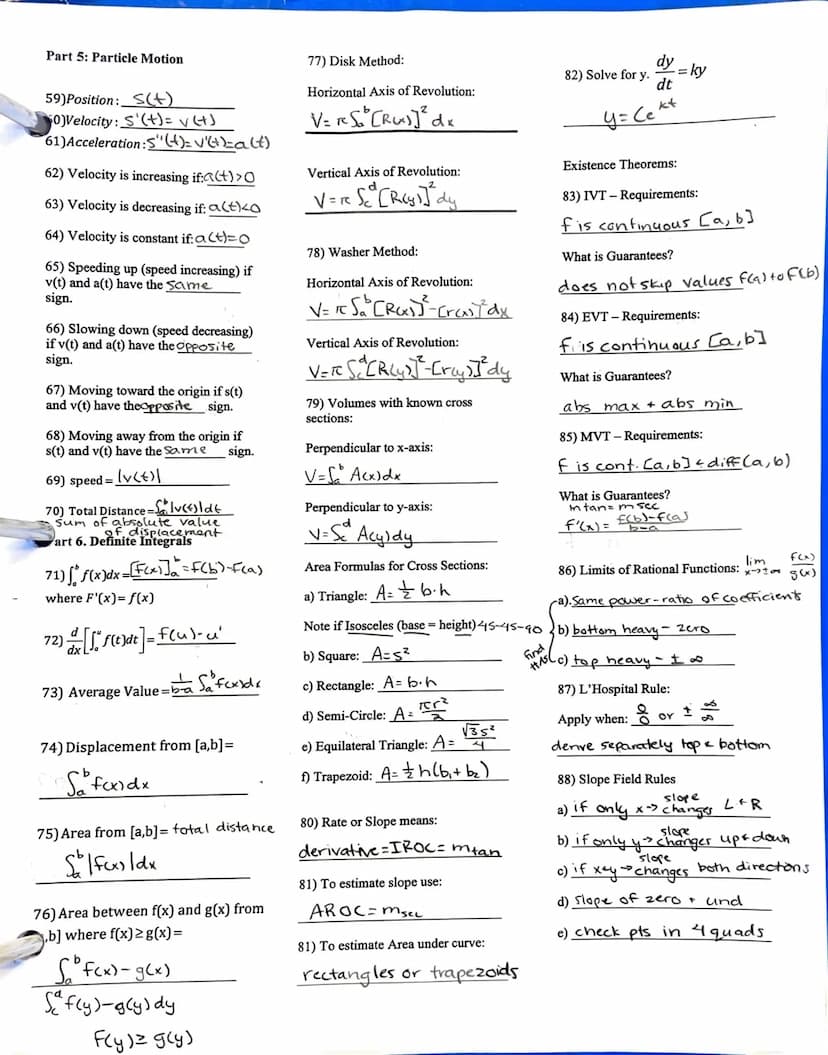 Part 5: Particle Motion
59)Position: s(t)
60)Velocity: s'(t)= v(t)
61)Acceleration: s''(t)= v'(t)=a(t)
62) Velocity is increasing if: a(t)>0
63) Velocity is decreasing if: a(t)<0
64) Velocity is constant if: a(t)=0
65) Speeding up (speed increasing) if
v(t) and a(t) have the same
sign.
66) Slowing down (speed decreasing)
if v(t) and a(t) have the opposite
sign.
67) Moving toward the origin if s(t)
and v(t) have the opposite sign.
68) Moving away from the origin if
s(t) and v(t) have the same sign.
69) speed = |v(t)|
70) Total Distance = ∫ₐᵇ |v(t)|dt
sum of absolute value
of displacement
Part 6. Definite Integrals
71) ∫ₐᵇ f(x)dx = [F(x)]ₐᵇ = F(b)-F(a)
where F'(x)= f(x)
72) d/dx [∫ₐᵘ f(t)dt] = f(u)·u'
73) Average Value = 1/b-a ∫ₐᵇ f(x)dx
74) Displacement from [a,b]=
∫ₐᵇ f(x)dx
75) Area from [a,b]= total distance
∫ₐᵇ |f(x)|dx
76) Area between f(x) and g(x) from
,b] where f(x)≥g(x)=
∫ₐᵇ f(x)-g(x)
∫ f(y)-g(y)dy
F(y)≥g(y)
77) Disk Method:
Horizontal Axis of Revolution:
V= π ∫ₐᵇ [R(x)]² dx
Vertical Axis of Revolution:
V= π ∫ᶜᵈ [R(y)]² dy
78) Washer Method:
Horizontal Axis of Revolution:
V= π ∫ₐᵇ [R(x)]²-[r(x)]² dx
Vertical Axis of Revolution:
V=π ∫ᶜᵈ [R(y)]²-[r(y)]² dy
79) Volumes with known cross
sections:
Perpendicular to x-axis:
V=∫ₐᵇ A(x)dx
Perpendicular to y-axis:
V=∫ᶜᵈ A(y)dy
Area Formulas for Cross Sections:
a) Triangle: A= 1/2 b·h
Note if Isosceles (base = height) 45-45-90
b) Square: A=s²
c) Rectangle: A= b·h
d) Semi-Circle: A= πr²/2
e) Equilateral Triangle: A= √3 s²/4
f) Trapezoid: A= 1/2 h(b₁+b₂)
80) Rate or Slope means:
derivative=IROC= mtan
81) To estimate slope use:
AROC= msec
81) To estimate Area under curve:
rectangles or trapezoids
82) Solve for y. dy/dt = ky
y= Ceᵏᵗ
Existence Theorems:
83) IVT – Requirements:
f is continuous [a,b]
What is Guarantees?
does not skip values f(a) to f(b)
84) EVT – Requirements:
f is continuous [a,b]
What is Guarantees?
abs max + abs min
85) MVT – Requirements:
f is cont. [a,b] + diff (a,b)
What is Guarantees?
mtan= msec
f'(x) = f(b)-f(a)/b-a
86) Limits of Rational Functions: lim x→±∞ f(x)/g(x)
a). Same power-ratio of coefficients
b) bottom heavy- zero
find HAs c) top heavy- ± ∞
87) L'Hospital Rule:
Apply when: 0/0 or ± ∞/∞
derive separately top & bottom
88) Slope Field Rules
a) if only x→ slope changes L+R
b) if only y→ slope changes up+down
c) if x+y→ slope changes both directions
d) slope of zero + und
e) check pts in 4 quads